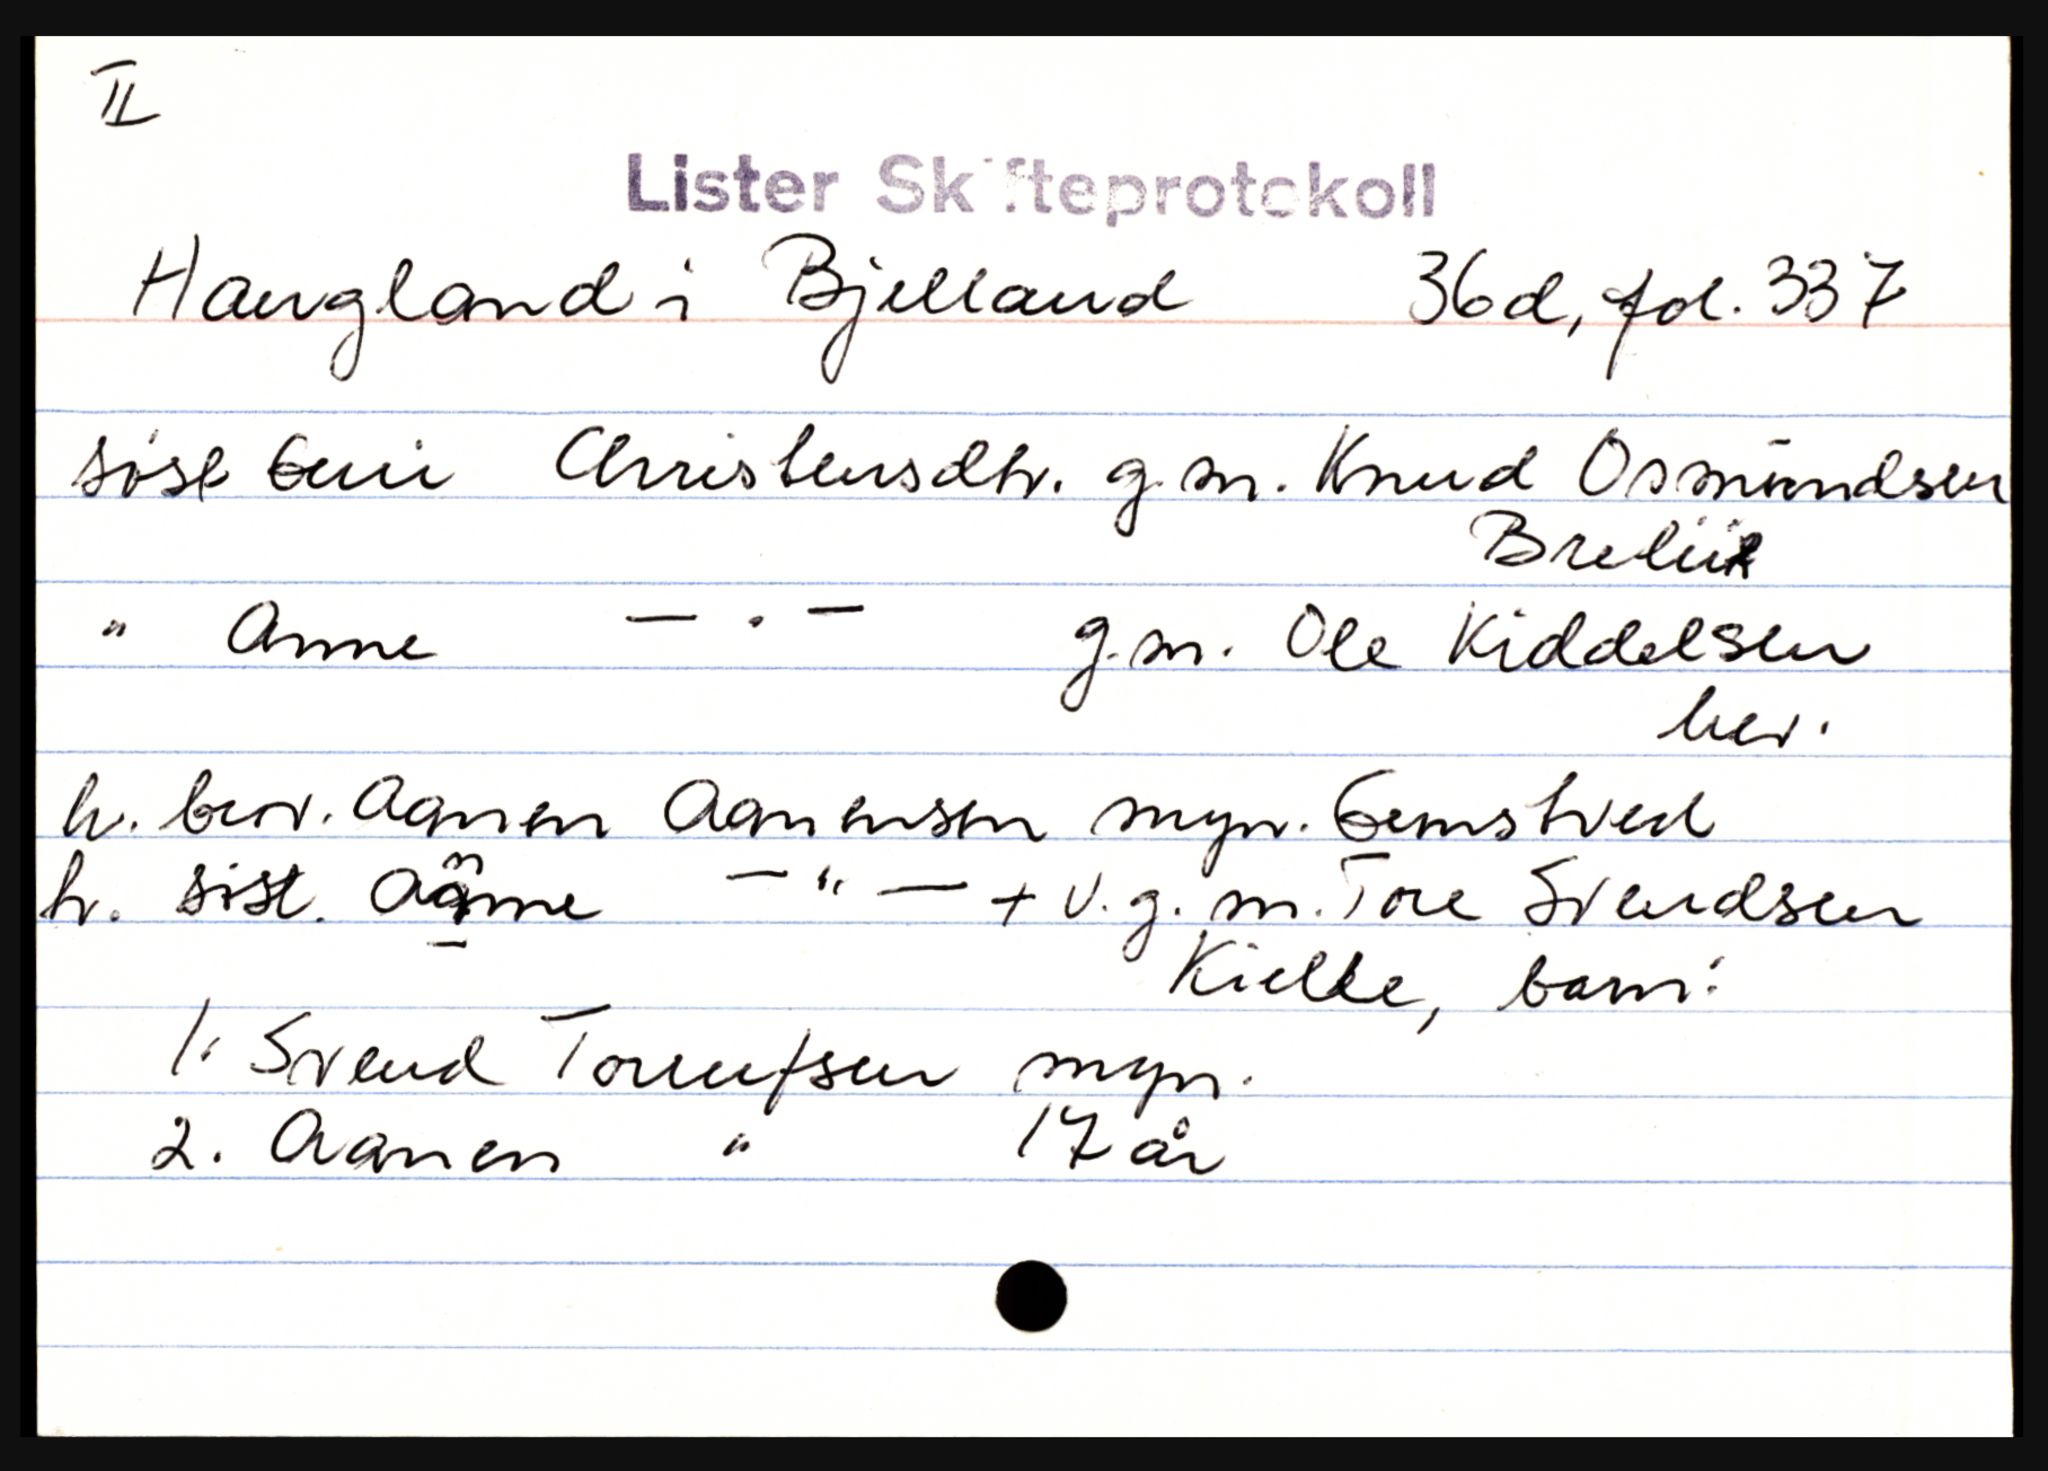 II
Lister Skifteprotokoll
Haugland i Bjelland 36d, fol. 337
sist Guri Christensdtr. g.m. Knud Osmundsen
Breliik
" Anne — " — g.m. Ole Kiddelsen
her.
h. brr. Aanen Aanensen myn. Gemstved
h. sist. Aanne — " — + v. g. m. Tore Svendsen
Kielle, barn:
1. Svend Torrefsen myn.
2. Aanen " 17 år